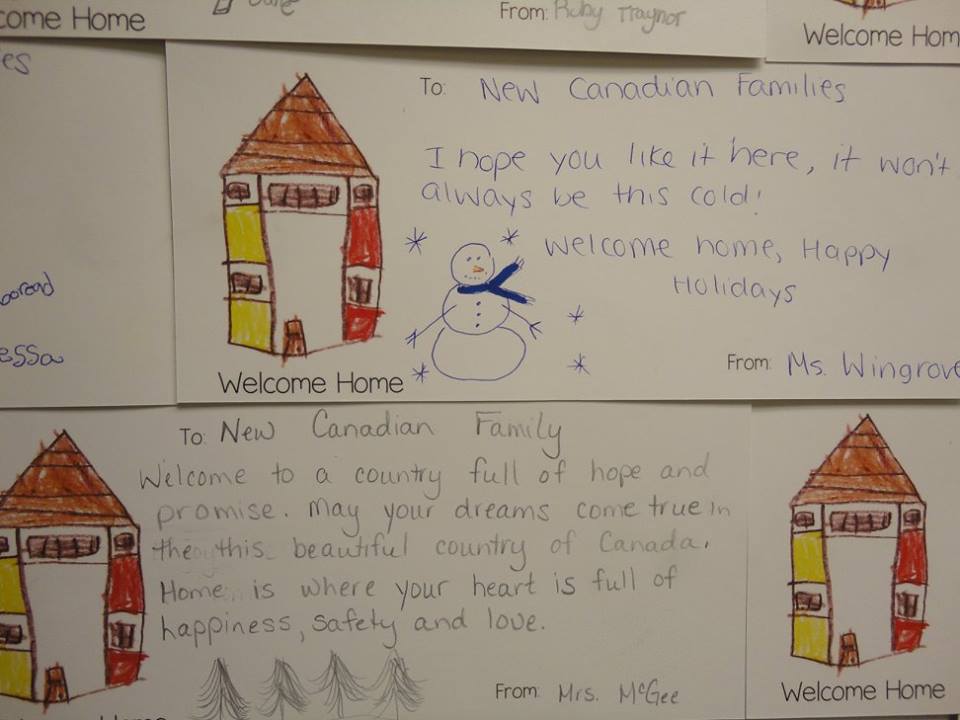 come Home
From: Ruby Traynor
Welcome Hom
es
essa
To: New Canadian Families
I hope you like it here, it won't
always be this cold!
Welcome home, Happy
Holidays
From: Ms. Wingrove
Welcome Home
To: New Canadian Family
Welcome to a country full of hope and
promise. May your dreams come true in
the this beautiful country of Canada.
Home is where your heart is full of
happiness, safety and love.
From: Mrs. McGee
Welcome Home